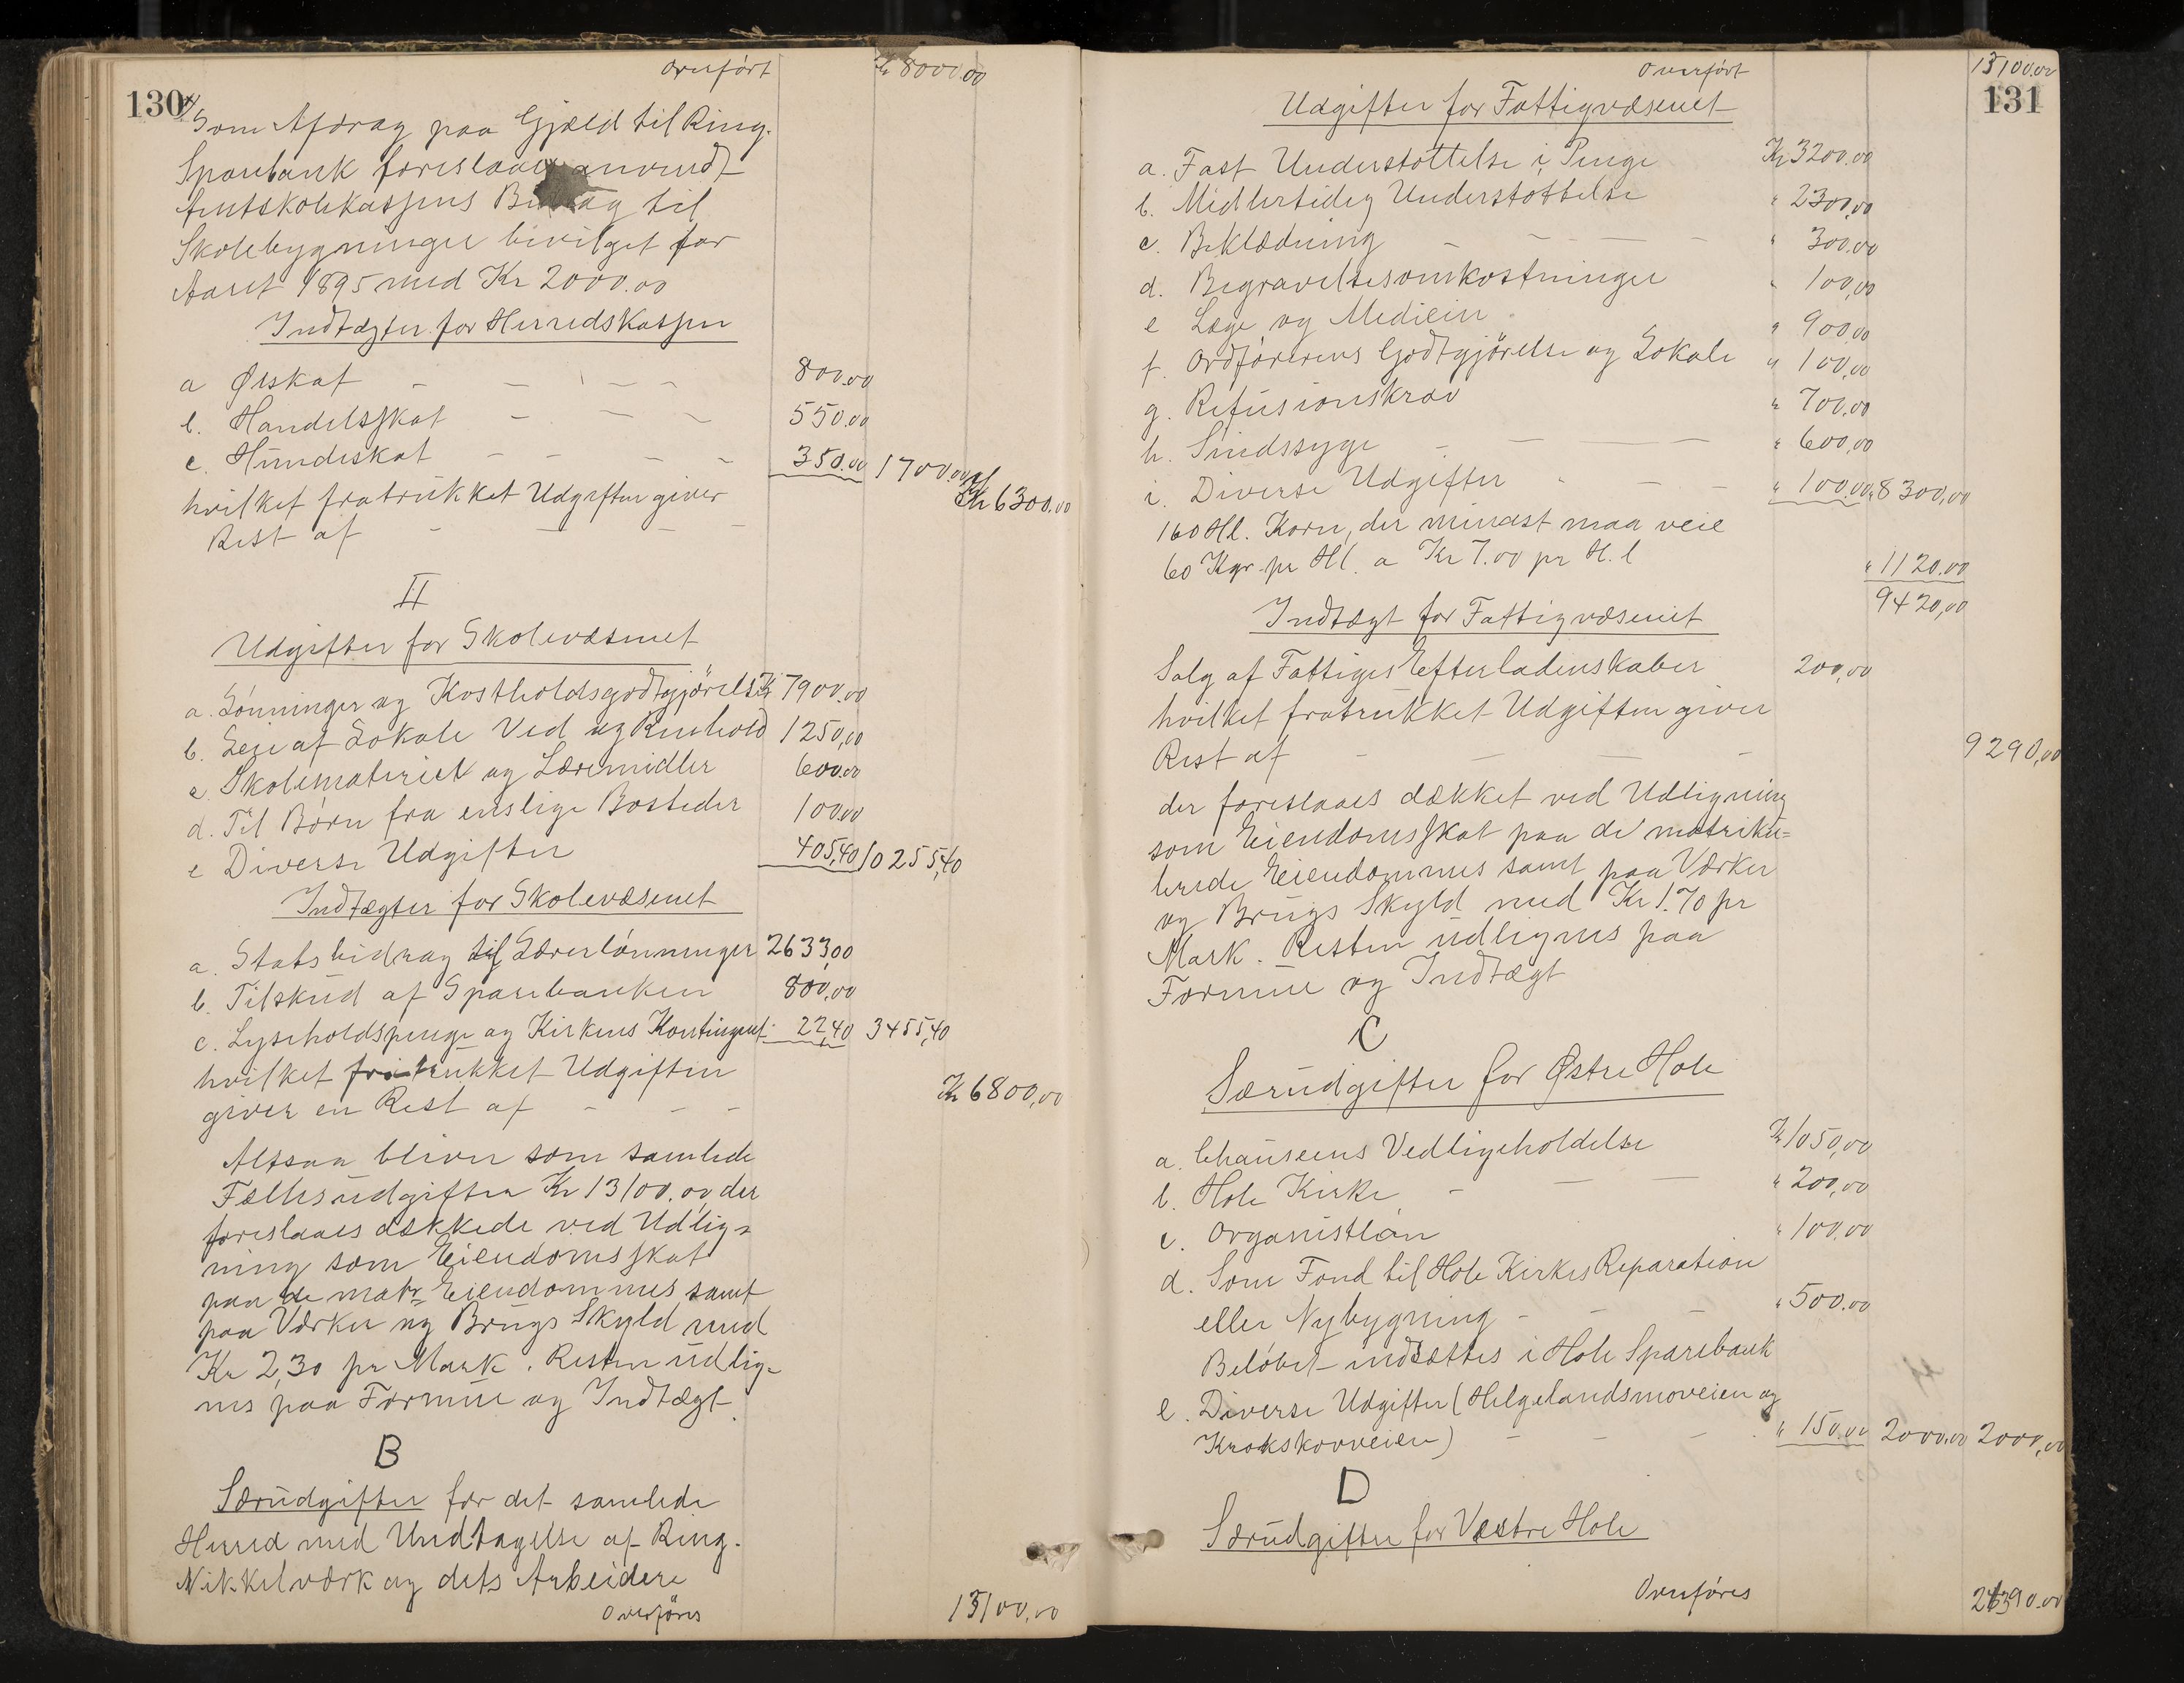 Overført Kr 8000.00
130
Som Afdrag paa Gjæld til Ring.
Sparebank foreslaaes anvendt
Amtskolekassens Bidrag til
Skolebygninger bevilget for
Aaret 1895 med Kr 2000.00
Indtægter for Herredskassen
a Ølskat - - - - - 800.00
b. Handelsskat - - - 550.00
c. Hundeskat - - - - 350.00 1700.00
hvilket fratrukket Udgiften giver
Rest af - - - - Kr 6300.00
II
Udgifter for Skolevæsenet
a. Lønninger og Kostholdsgodtgjørelse Kr 7900.00
b. Leie af Lokale Ved og Renhold 1250,00
c. Skolemateriel og Læremidler 600.00
d. Til Børn fra enslige Bosteder 100.00
e Diverse Udgifter 405,40 10255,40
Indtægter for Skolevæsenet
a. Statsbidrag til Lærerlønninger 2633,00
b. Tilskud af Sparebanken 800,00
c. Lyseholdspenge og Kirkens Kontingent 22,40 3455,40
hvilket fratrukket Udgiften
giver en Rest af - - - Kr 6800,00
Altsaa bliver som samlede
Fællesudgifter Kr 13100,00 der
foreslaaes dækkede ved Udlig=
ning som Eiendomsskat
paa de matr= Eiendomme samt
paa Værker og Brugs Skyld med
Kr 2,30 pr Mark. Resten udlig=
nes paa Formue og Indtægt
B
Særudgifter for det samlede
Herred med Undtagelse af Ring.
Nikkelværk og dets Arbeidere
Overføres 13100,00
Overført 13100.00
131
Udgifter for Fattigvæsenet
a. Fast Understøttelse i Penge Kr 3200.00
b. Midlertidig Understøttelse " 2300,00
c. Beklædning - - - - " 300.00
d. Begravelsesomkostninger " 100,00
e Læge og Medicin " 900,00
f. Ordførerens Godtgjørelse og Lokale " 100,00
g. Refusionskrav " 700,00
h. Sindssyge - - - - " 600,00
i. Diverse Udgifter - - - " 100.00 " 8300,00
160 Hl. Korn, der mindst maa veie
60 Kgr. pr Hl. a Kr 7.00 pr H.l " 1120.00
9420,00
Indtægt for Fattigvæsenet
Salg af Fattiges Efterladenskaber 200,00
hvilket fratrukket Udgiften giver
Rest af - - - - 9290,00
der foreslaaes dækket ved Udligning
som Eiendomsskat paa de matriku=
lerede Eiendomme samt paa Værker
og Brugs Skyld med Kr 1.70 pr
Mark. Resten udlignes paa
Formue og Indtægt
C
Særudgifter for Østre Hole
a. Chauseens Vedligeholdelse Kr 1050,00
b. Hole Kirke - - - " 200,00
c. Organistløn " 100.00
d. Som Fond til Hole Kirkes Reparation
eller Nybygning - - - " 500.00
Beløbet indsættes i Hole Sparebank
e. Diverse Udgifter (Helgelandsmoveien og
Krokskovveien) - - - " 150.00 2000.00 2000,00
D
Særudgifter for Vestre Hole
Overføres 24390.00